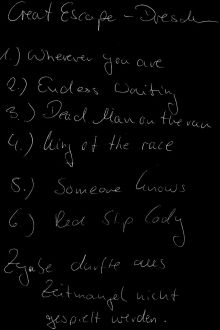 Great Escape - Dresden
1.) Wherever you are
2.) Endless Waiting
3.) Dead Man on the run
4.) King of the race
5.) Someone knows
6.) Red Slip Lady
Zugabe durfte aus
Zeitmangel nicht
gespielt werden.